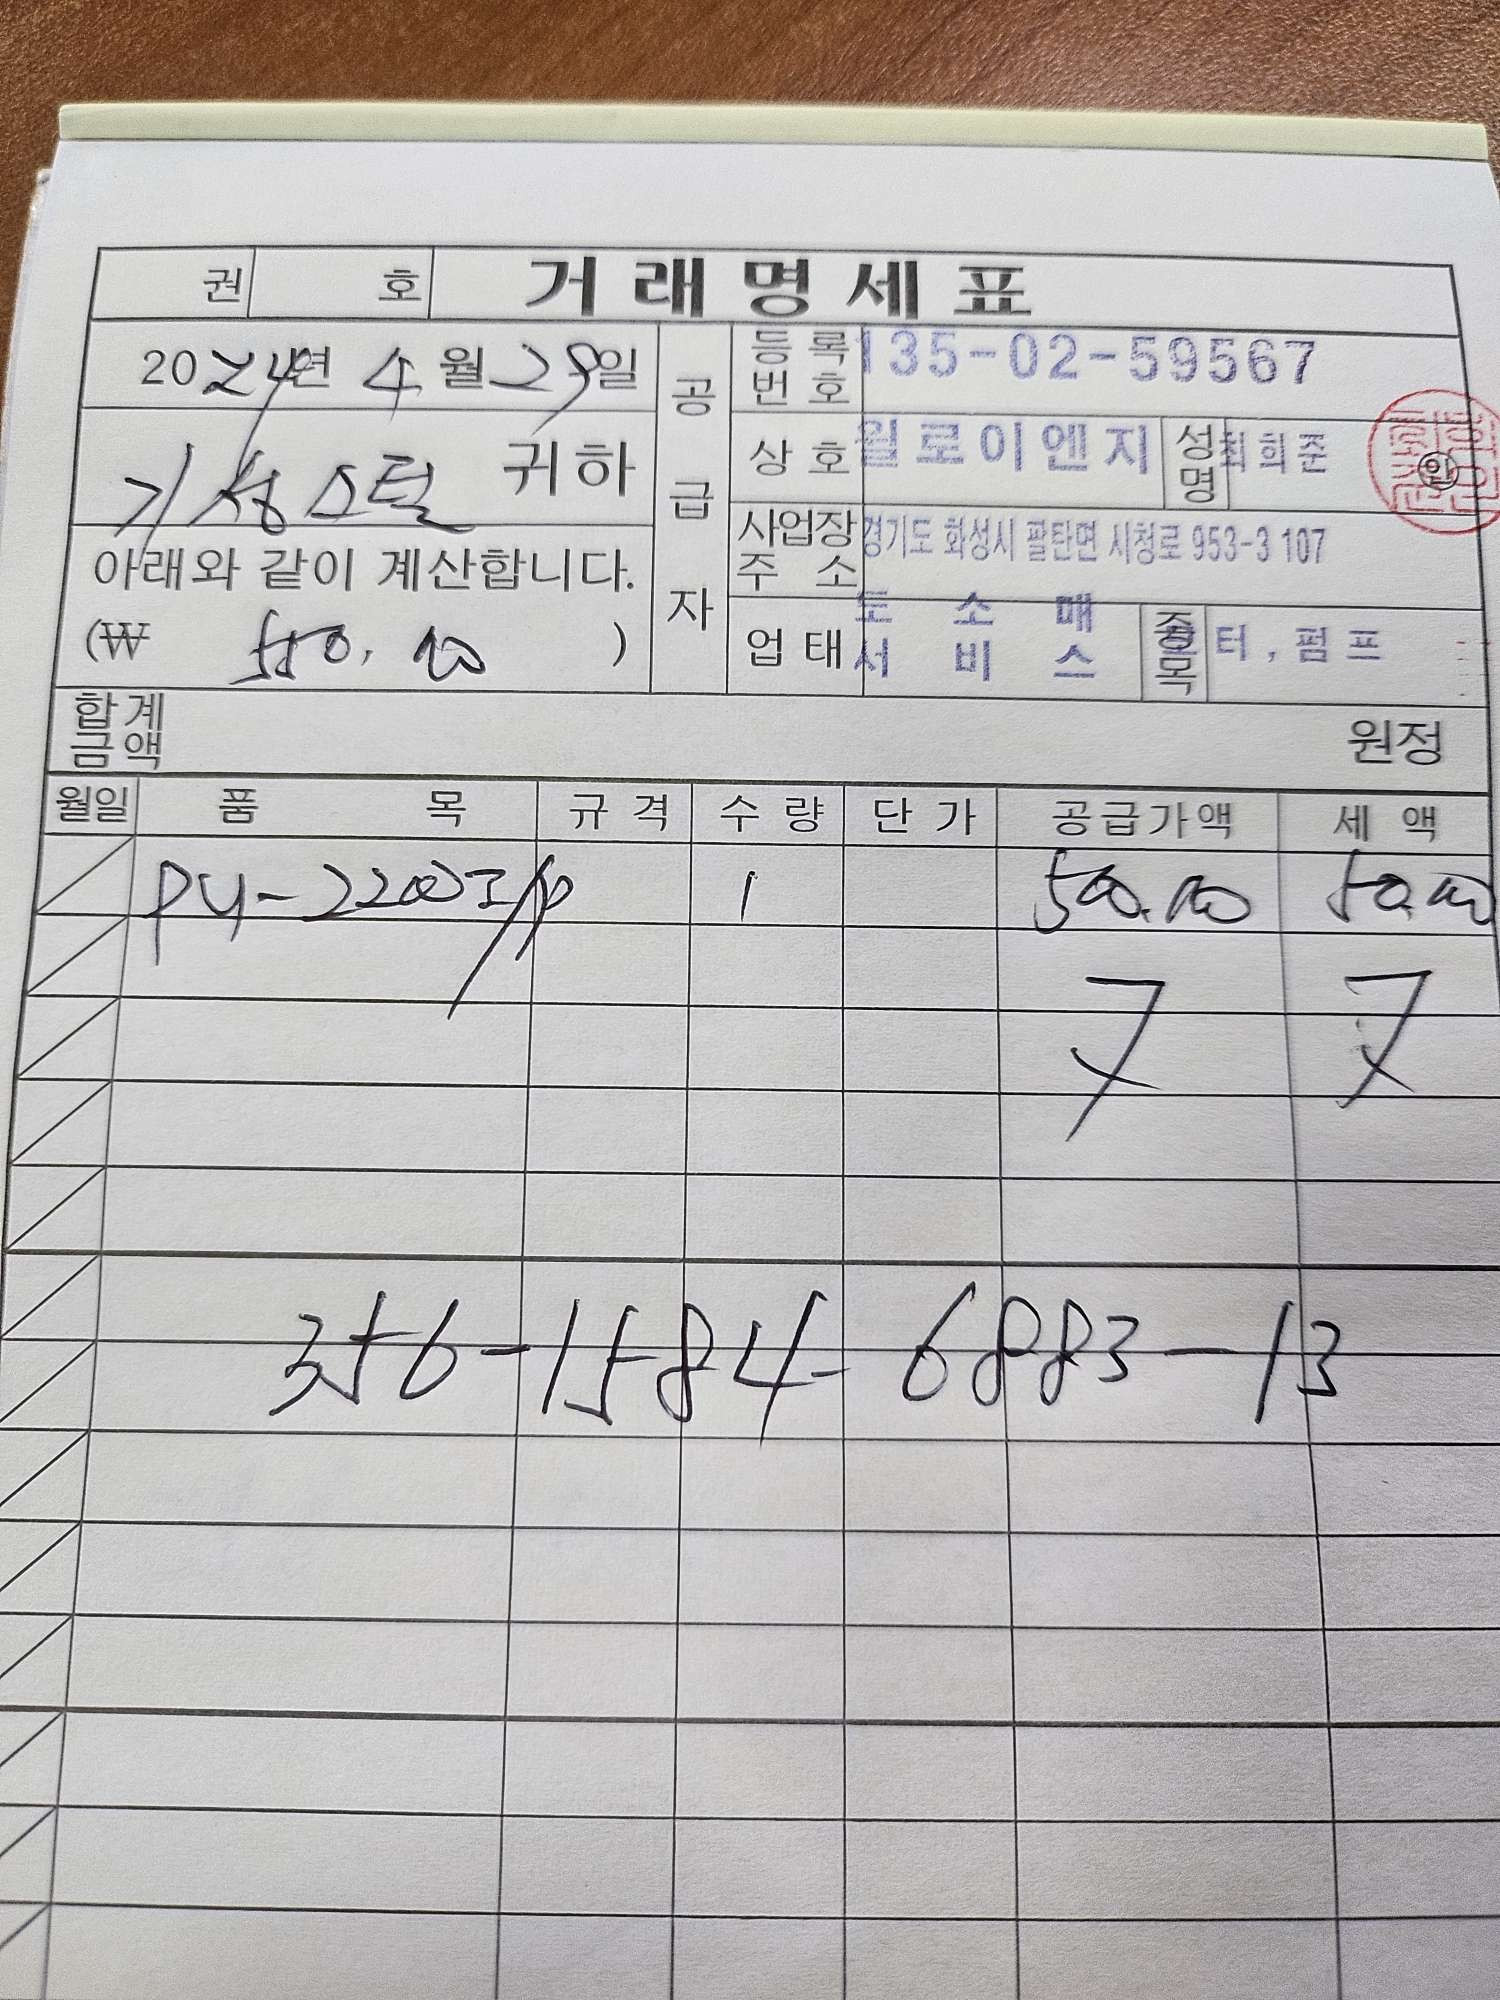 권 호 거래명세표
2024년 4월 29일
기성스틸 귀하
아래와 같이 계산합니다.
(₩ 550,000 )
공급자
등록번호 135-02-59567
상호 윌로이엔지 성명 최희준 ㊞
사업장주소 경기도 화성시 팔탄면 시청로 953-3 107
업태 도소매 서비스 종목 모터, 펌프
합계금액 원정
월일 품목 규격 수량 단가 공급가액 세액
PU-2200I/P 1 500,000 50,000
356-1584-6883-13